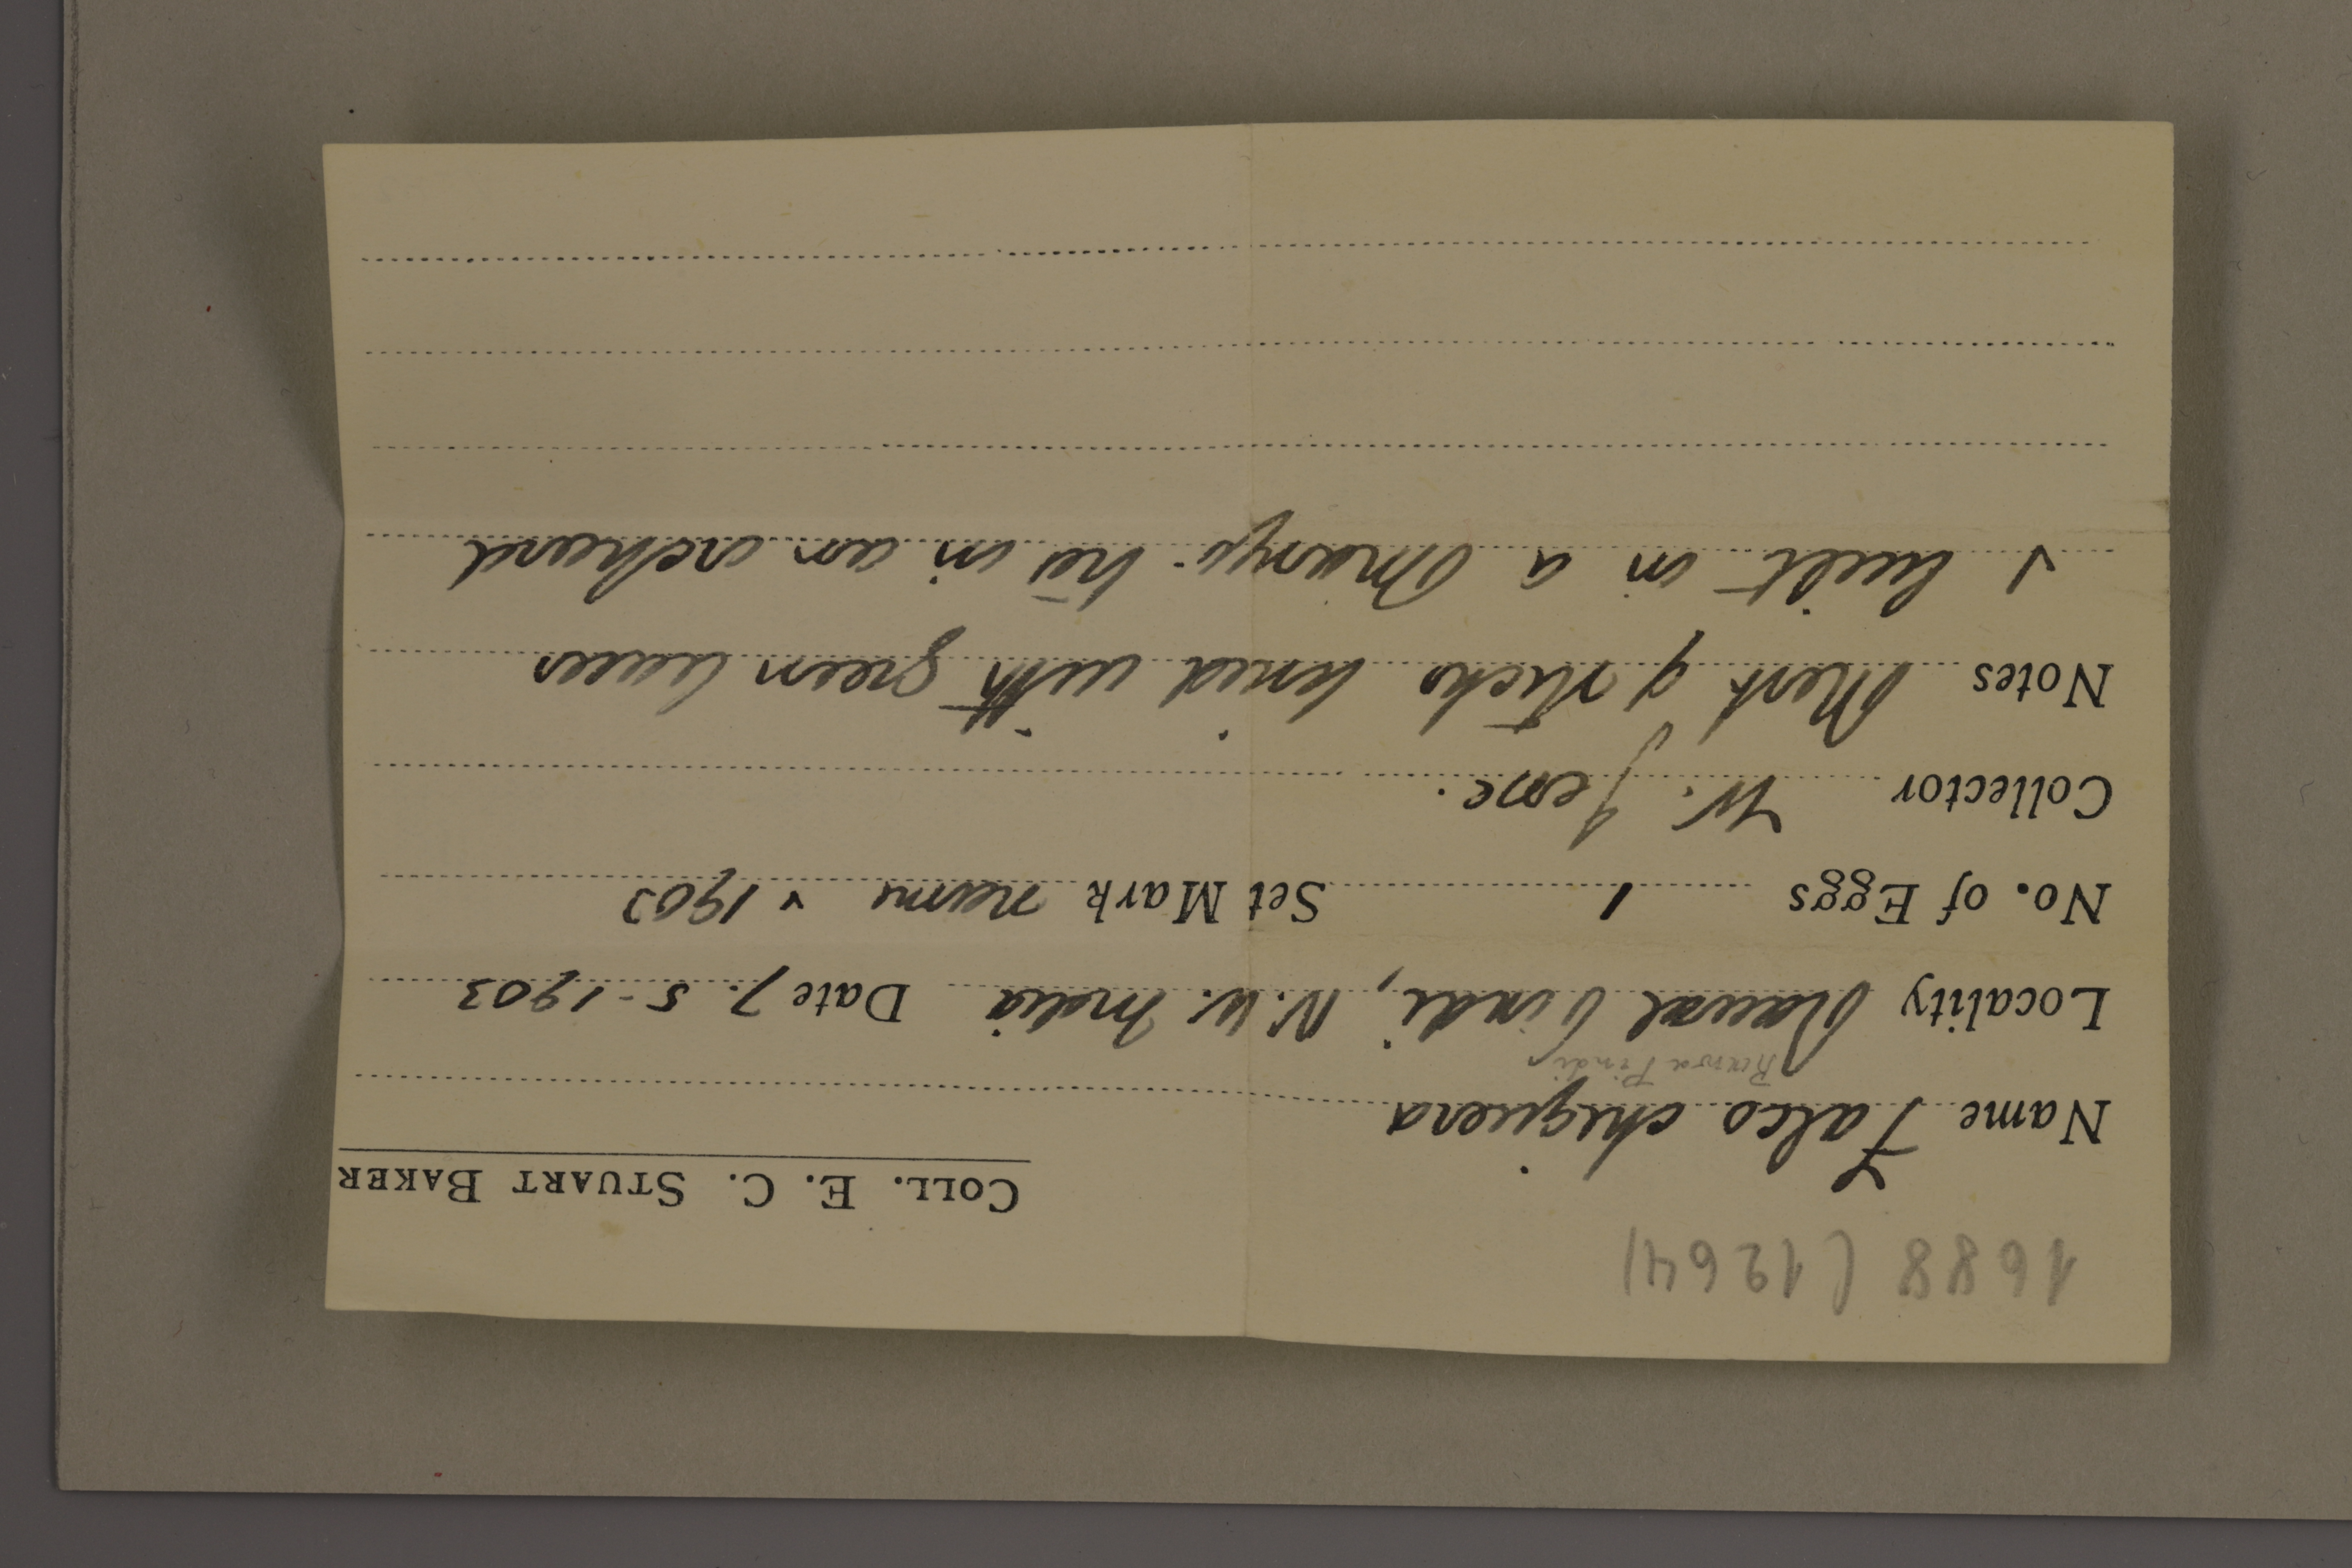 1688 (1264)
COLL. E. C. STUART BAKER
Name Falco chiquera
Rawa Pindi
Locality Rawal Pindi, N.W. India Date 7. 5-1903
No. of Eggs 1 Set Mark 1903
Collector W.
Notes Nest of sticks lined with green leaves
& built in a Mango tree in an orchard